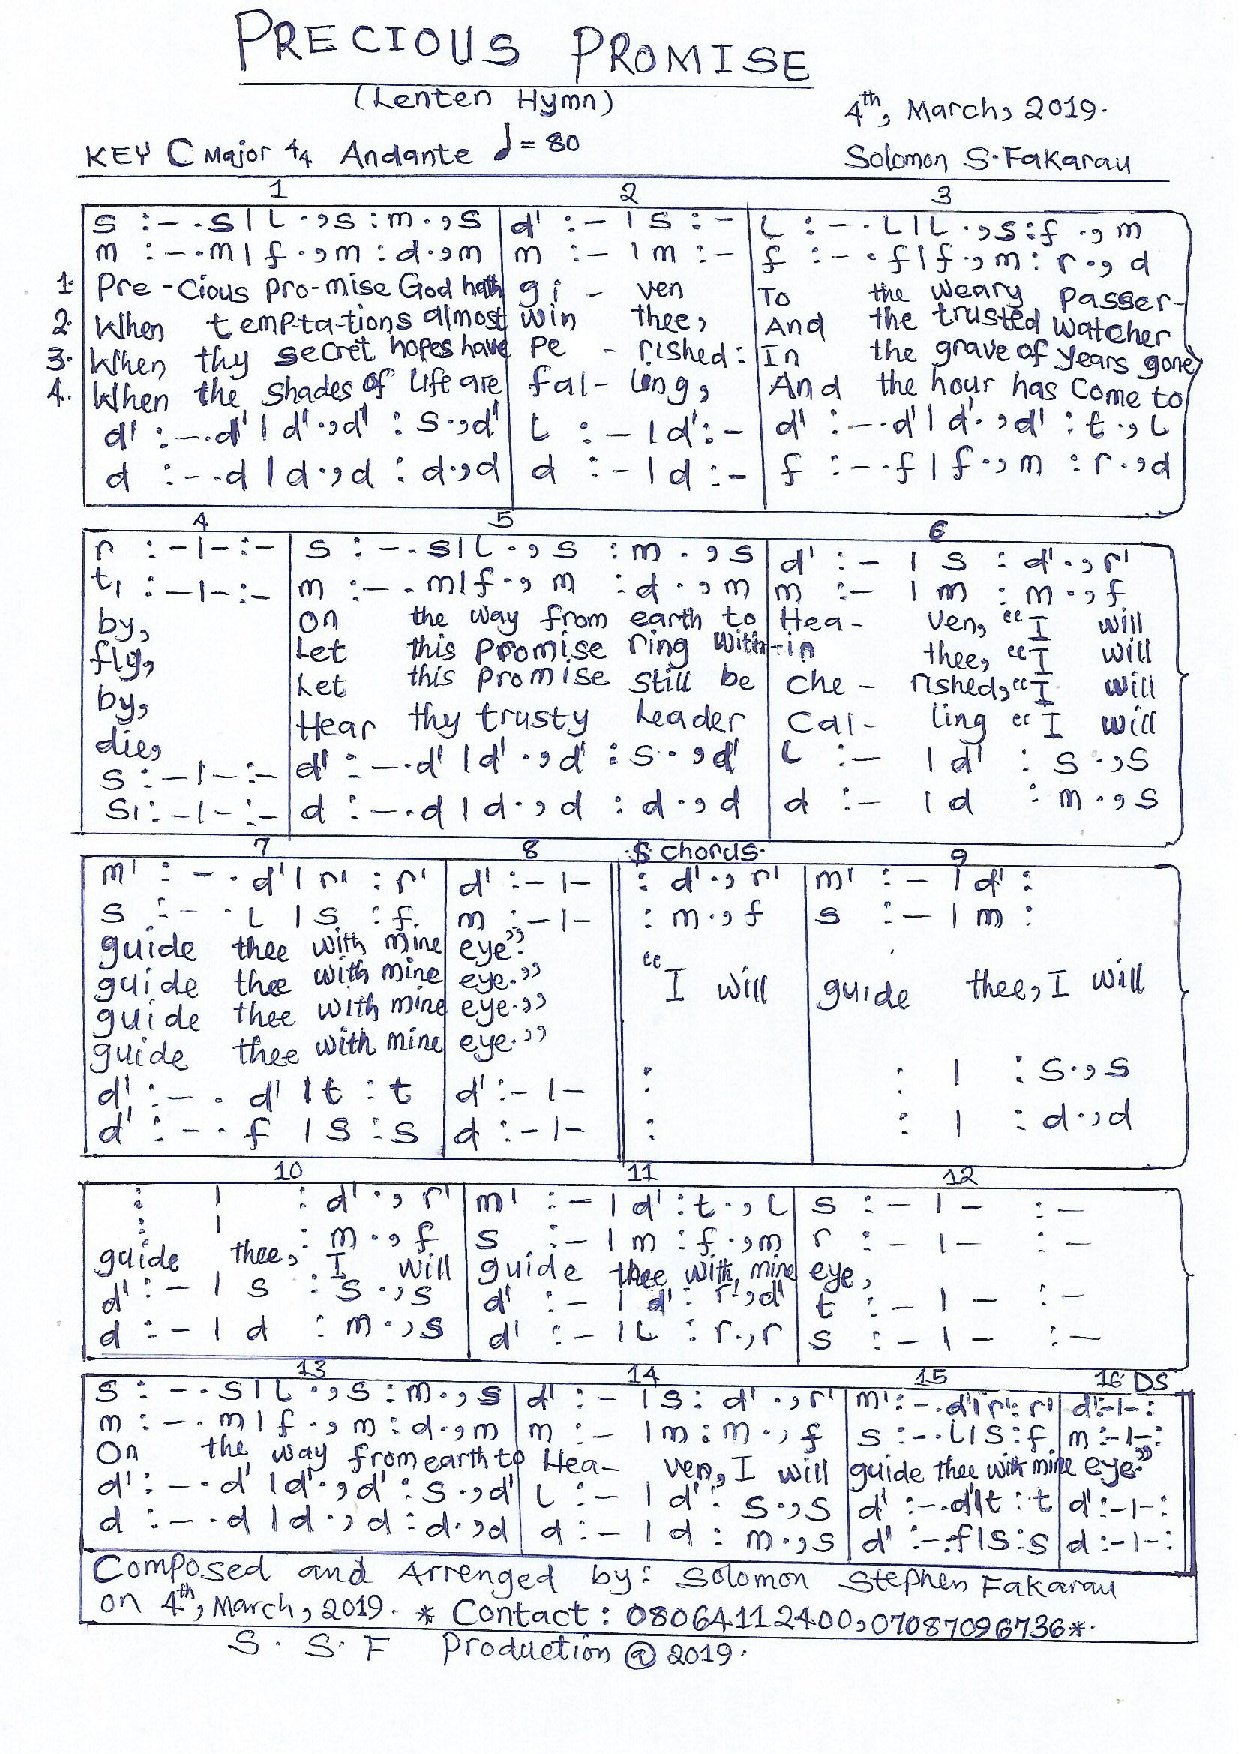 PRECIOUS PROMISE
(Lenten Hymn)
4th, March, 2019.
KEY C Major 4/4 Andante ♩= 80
Solomon S. Fakarau
1 2 3
s :-.s|L.,s:m.,s d' :-|s :- L :-.L|L.,s:f.,m
m :-.m|f.,m:d.,m m :-|m :- f :-.f|f.,m:r.,d
1. Pre-cious pro-mise God hath gi-ven To the weary passer-
2. When temp-ta-tions almost win thee, And the trusted watcher
3. When thy secret hopes have pe-rished: In the grave of years gone
4. When the shades of life are fal-ling, And the hour has come to
d' :-.d'|d'.,d':s.,d' L :-|d':- d' :-.d'|d'.,d':t.,L
d :-.d|d.,d:d.,d d :-|d :- f :-.f|f.,m:r.,d
4 5 6
r :-|-:- s :-.s|L.,s :m.,s d' :-|s :d'.,r'
t, :-|-:- m :-.m|f.,m :d.,m m :-|m :m.,f
by, On the way from earth to Hea-ven, "I will
fly, Let this promise ring with-in thee, "I will
by, Let this promise still be che-rished, "I will
die, Hear thy trusty leader Cal-ling "I will
s :-|-:- d' :-.d'|d'.,d':s.,d' L :-|d' :s.,s
s, :-|-:- d :-.d|d.,d:d.,d d :-|d :m.,s
7 8 .$ chorus. 9
m' :-.d'|r' :r' d' :-|- : d'.,r' m' :-|d' :
s :-.L|s :f. m :-|- : m.,f s :-|m :
guide thee with mine eye".
guide thee with mine eye." "I will guide thee, I will
guide thee with mine eye."
guide thee with mine eye."
d' :-.d'|t :t d' :-|- : : | :s.,s
d' :-.f|s :s d :-|- : : | :d.,d
10 11 12
: | :d'.,r' m' :-|d':t.,L s :-|- :-
: | :m.,f s :-|m :f.,m r :-|- :-
guide thee, I will guide thee with mine eye,
d' :-|s :s.,s d' :-|d' :r'.,d' t :-|- :-
d :-|d :m.,s d' :-|L :r.,r s :-|- :-
13 14 15 16 DS
s :-.s|L.,s:m.,s d' :-|s :d'.,r' m':-.d'|r':r' d':-|-:
m :-.m|f.,m:d.,m m :-|m :m.,f s :-.L|s:f m :-|-:
On the way from earth to Hea-ven, I will guide thee with mine eye."
d' :-.d'|d'.,d':s.,d' L :-|d' :s.,s d' :-.d'|t :t d' :-|-:
d :-.d|d.,d:d.,d d :-|d :m.,s d' :-.f|s:s d :-|-:
Composed and Arrenged by: Solomon Stephen Fakarau
on 4th, March, 2019. * Contact: 08064112400, 07087096736*.
S. S. F Production @ 2019.